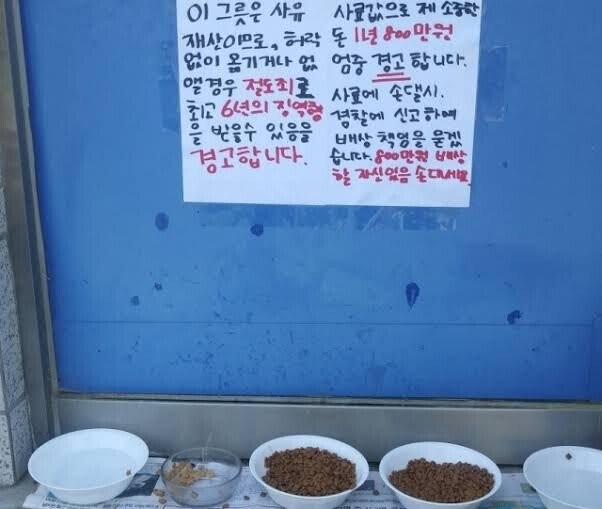 이 그릇은 사유
재산이므로, 허락
없이 옮기거나 없
앨 경우 절도죄로
최고 6년의 징역형
을 받을수 있음을
경고합니다.
사료값으로 제 소중한
돈 1년 800만원
엄중 경고합니다.
사료에 손댈시.
경찰에 신고하여
배상 책임을 묻겠
습니다. 800만원 배상
할 자신있음 손대세요